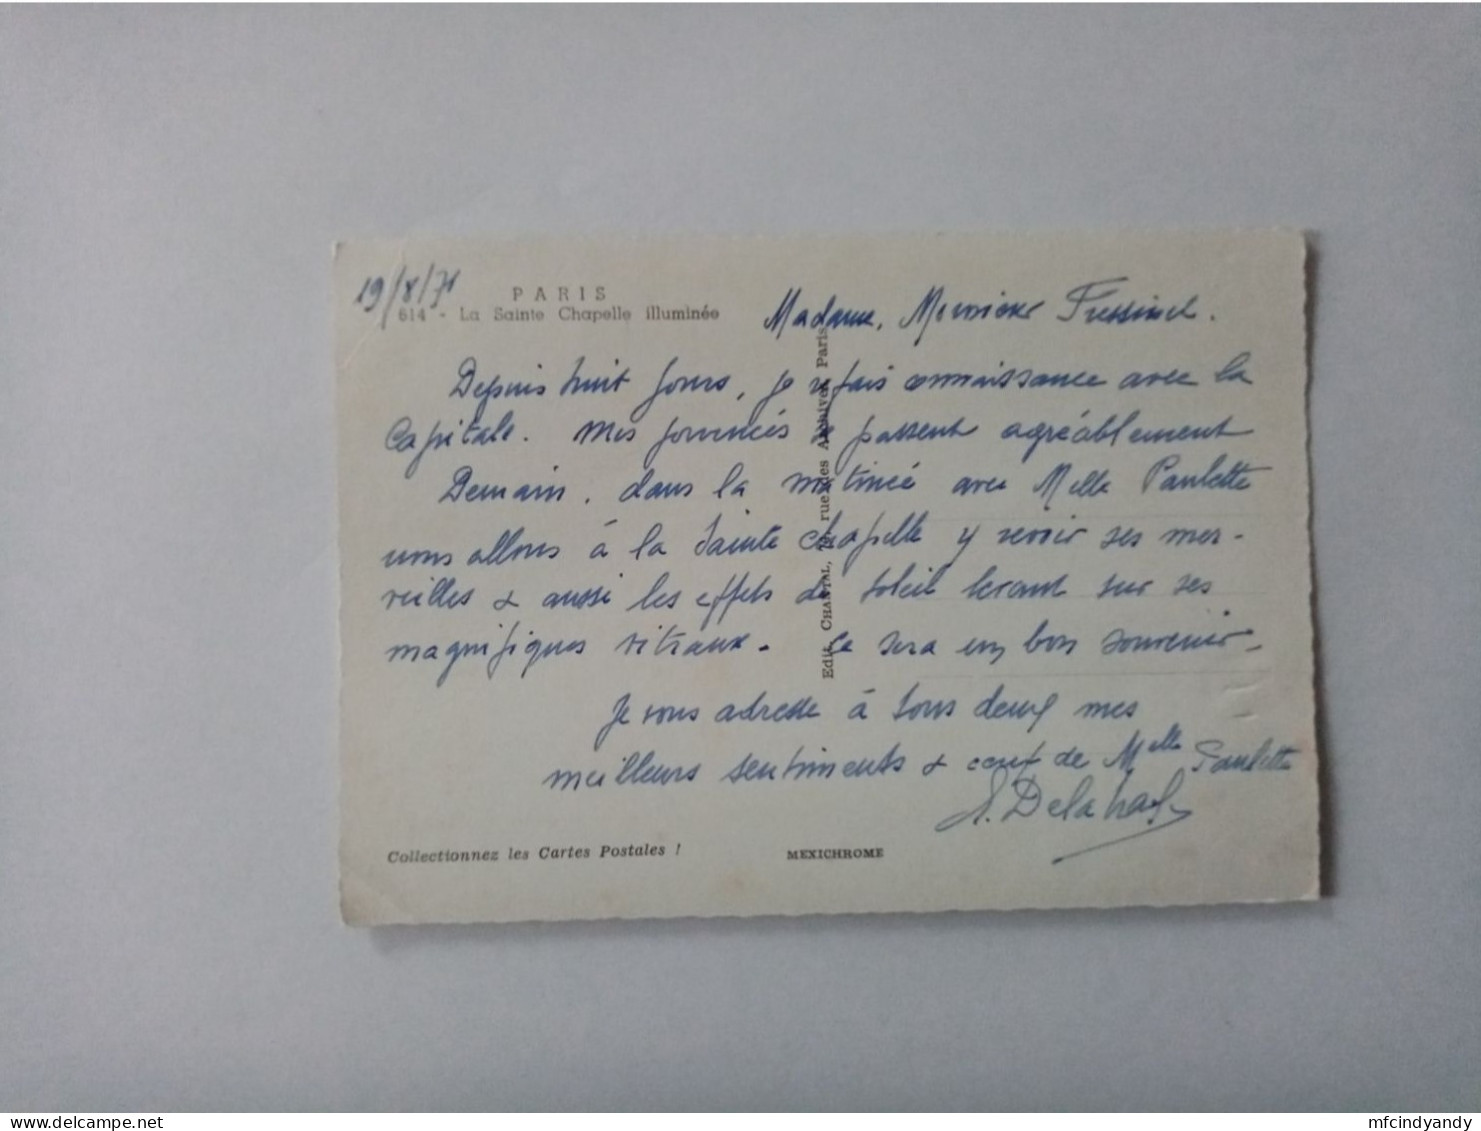 19/8/71
PARIS
614 - La Sainte Chapelle illuminée
Madame, Monsieur Fressinet.
Depuis huit jours, je refais connaissance avec la
Capitale. Mes journées se passent agréablement
Demain, dans la matinée avec Melle Paulette
nous allons à la Sainte Chapelle y revoir ses mer-
veilles & aussi les effets du soleil levant sur ses
magnifiques vitraux. Ce sera un bon souvenir.
Je vous adresse à tous deux mes
meilleurs sentiments & ceux de Melle Paulette
Edit. CHANTAL, rue des Archives, Paris
Collectionnez les Cartes Postales !
MEXICHROME
mfcindyandy